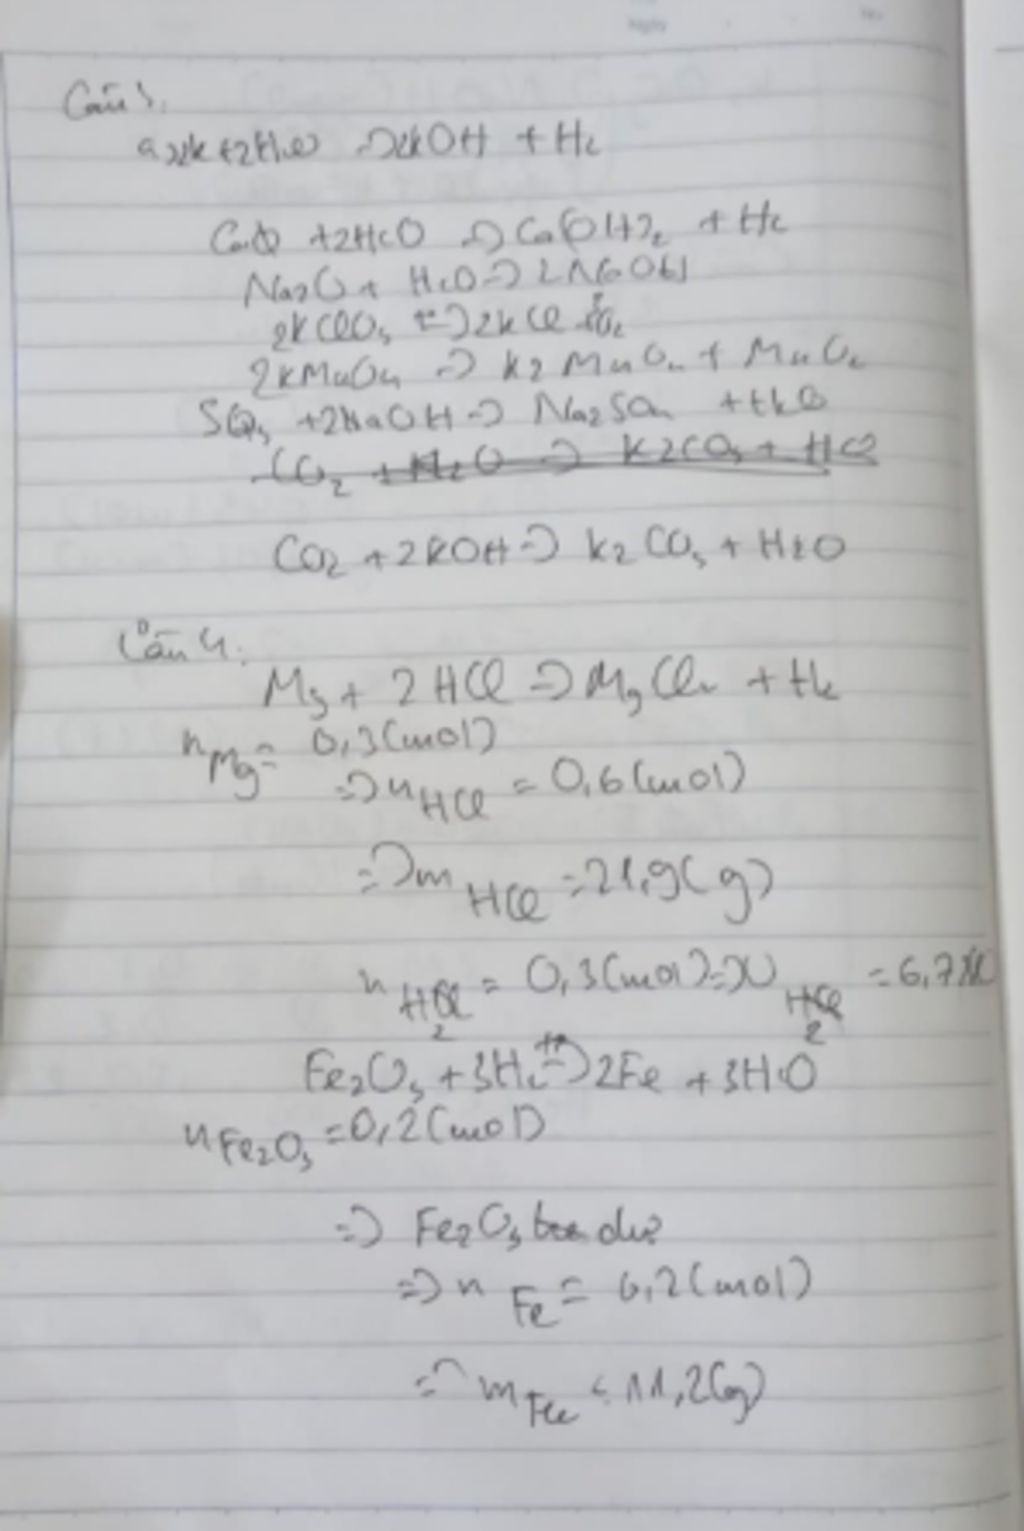 Câu 3.
a, 2K + 2H2O => 2KOH + H2
Ca + 2H2O => Ca(OH)2 + H2
Na2O + H2O => 2NaOH
2KClO3 => 2KCl 3O2
2KMnO4 => K2MnO4 + MnO2
SO3 + 2NaOH => Na2SO4 + H2O
CO2 + H2O => K2CO3 + H2
CO2 + 2KOH => K2CO3 + H2O
Câu 4.
Mg + 2HCl => MgCl2 + H2
nMg = 0,3(mol)
=> nHCl = 0,6(mol)
=> mHCl = 21,9(g)
nH2 = 0,3(mol) => VH2 = 6,72
Fe2O3 + 3H2 => 2Fe + 3H2O
nFe2O3 = 0,2(mol)
=> Fe2O3 dư
=> nFe = 0,2(mol)
=> mFe = 11,2(g)